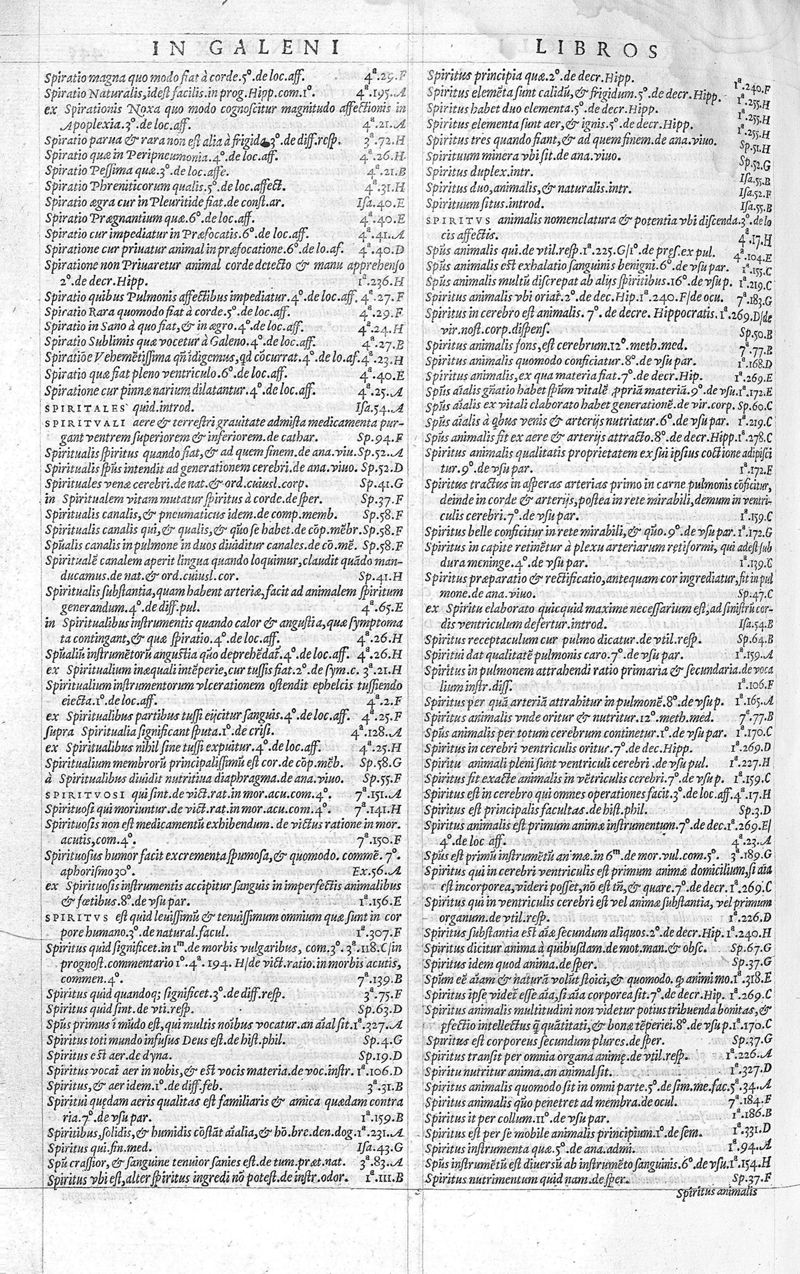 IN GALENI
Spiratio magna quo modo fiat à corde.5º.de loc.aff. 4ª.29.F
Spiratio Naturalis, idest facilis.in prog.Hipp.com.1º. 4ª.195.A
ex Spirationis Noxa quo modo cognoscitur magnitudo affectionis in
Apoplexia.3º.de loc.aff. 4ª.21.A
Spiratio parua & rara non est alia à frigida.3º.de diff.resp. 3ª.72.H
Spiratio quæ in Peripneumonia.4º.de loc.aff. 4ª.26.H
Spiratio Pessima quæ.3º.de loc.affe. 4ª.21.B
Spiratio Phreniticorum qualis.5º.de loc.affect. 4ª.31.H
Spiratio ægra cur in Pleuritide fiat.de const.ar. Isa.40.E
Spiratio Prægnantium quæ.6º.de loc.aff. 4ª.40.E
Spiratio cur impediatur in Præfocatis.6º.de loc.aff. 4ª.41.A
Spiratione cur priuatur animal in præfocatione.6º.de lo.af. 4ª.40.D
Spiratione non Priuaretur animal corde detecto & manu apprehenso
2º.de decr.Hipp. 1ª.236.H
Spiratio quibus Pulmonis affectibus impediatur.4º.de loc.aff. 4ª.27.F
Spiratio Rara quomodo fiat à corde.5º.de loc.aff. 4ª.29.F
Spiratio in Sano à quo fiat, & in ægro.4º.de loc.aff. 4ª.24.H
Spiratio Sublimis quæ vocetur à Galeno.4º.de loc.aff. 4ª.27.B
Spiratiõe Vehemẽtissima qñ idigenus, qd cõcurrat.4º.de lo.af. 4ª.23.H
Spiratio quæ fiat pleno ventriculo.6º.de loc.aff. 4ª.40.E
Spiratione cur pinnæ narium dilatantur.4º.de loc.aff. 4ª.25.A
SPIRITALES quid.introd. Isa.54.A
SPIRITVALI aere & terrestri grauitate admista medicamenta pur-
gant ventrem superiorem & inferiorem.de cathar. Sp.94.F
Spiritualis spiritus quando fiat, & ad quem finem.de ana.viu. Sp.52.A
Spiritualis spũs intendit ad generationem cerebri.de ana.viuo. Sp.52.D
Spirituales venæ cerebri.de nat.& ord.cuiusl.corp. Sp.41.G
in Spiritualem vitam mutatur spiritus à corde.de sper. Sp.37.F
Spiritualis canalis, & pneumaticus idem.de comp.memb. Sp.58.F
Spiritualis canalis qui, & qualis, & qũo se habet.de cõp.mẽbr. Sp.58.F
Spũalis canalis in pulmone in duos diuiditur canales.de cõ.mẽ. Sp.58.F
Spiritualẽ canalem aperit lingua quando loquimur, claudit quãdo man-
ducamus.de nat.& ord.cuiusl.cor. Sp.41.H
Spiritualis substantia, quam habent arteriæ, facit ad animalem spiritum
generandum.4º.de diff.pul. 4ª.65.E
in Spiritualibus instrumentis quando calor & angustia, quæ symptoma
ta contingant, & quæ spiratio.4º.de loc.aff. 4ª.26.H
Spũaliũ instrumẽtorũ angustia qũo deprehẽdat.4º.de loc.aff. 4ª.26.H
ex Spiritualium inæquali intẽperie, cur tussis fiat.2º.de sym.c. 3ª.21.H
Spiritualium instrumentorum vlcerationem ostendit ephelcis tussiendo
eiecta.1º.de loc.aff. 4ª.2.F
ex Spiritualibus partibus tussi eijcitur sanguis.4º.de loc.aff. 4ª.25.F
supra Spiritualia significant sputa.1º.de crisi. 4ª.128.A
ex Spiritualibus nihil sine tussi expuitur.4º.de loc.aff. 4ª.25.H
Spiritualium membrorũ principalissimũ est cor.de cõp.mẽb. Sp.58.G
à Spiritualibus diuidit nutritiua diaphragma.de ana.viuo. Sp.55.F
SPIRITVOSI qui sint.de vict.rat.in mor.acu.com.4º. 7ª.151.A
Spirituosi qui moriuntur.de vict.rat.in mor.acu.com.4º. 7ª.141.H
Spirituosis non est medicamentũ exhibendum. de victus ratione in mor.
acutis,com.4º. 7ª.150.F
Spirituosus humor facit excrementa spumosa, & quomodo. commẽ.7º.
aphorismo 30º. Ex.56.A
ex Spirituosis instrumentis accipitur sanguis in imperfectis animalibus
& fœtibus.8º.de vsu par. 1ª.156.E
SPIRITVS est quid leuissimũ & tenuissimum omnium quæ sunt in cor
pore humano.3º.de natural.facul. 1ª.307.B
Spiritus quid significet.in 1ᵐ.de morbis vulgaribus, com.3º. 3ª.118.C/in
prognost.commentario 1º. 4ª.194. H/de vict.ratio.in morbis acutis,
commen.4º. 7ª.139.B
Spiritus quid quandoq; significet.3º.de diff.resp. 3ª.75.F
Spiritus quid sint.de vti.resp. Sp.63.D
Spũs primus i mũdo est, qui multis noĩbus vocatur.an aĩal sit. 1ª.327.A
Spiritus toti mundo infusus Deus est.de hist.phil. Sp.4.G
Spiritus est aer.de dyna. Sp.19.D
Spiritus vocat̃ aer in nobis, & est vocis materia.de voc.instr. 1ª.106.D
Spiritus, & aer idem.1º.de diff.feb. 3ª.31.B
Spiritui quędam aeris qualitas est familiaris & amica quædam contra
ria.7º.de vsu par. 1ª.159.B
Spiritibus, solidis, & humidis cõstãt aĩalia, & hõ.bre.den.dog. 1ª.231.A
Spiritus qui.fin.med. Isa.43.G
Spũ crassior, & sanguine tenuior sanies est.de tum.præt.nat. 3ª.83.A
Spiritus vbi est, alter spiritus ingredi nõ potest.de instr.odor. 1ª.111.B
LIBROS
Spiritus principia quæ.2º.de decr.Hipp. 1ª.240.F
Spiritus elemẽta sunt calidũ, & frigidum.5º.de decr.Hipp. 1ª.255.H
Spiritus habet duo elementa.5º.de decr.Hipp. 1ª.255.H
Spiritus elementa sunt aer, & ignis.5º.de decr.Hipp. 1ª.255.H
Spiritus tres quando fiant, & ad quem finem.de ana.viuo. Sp.51.H
Spirituum minera vbi sit.de ana.viuo. Sp.52.G
Spiritus duplex.intr. Isa.55.B
Spiritus duo, animalis, & naturalis.intr. Isa.52.F
Spirituum situs.introd. Isa.55.B
SPIRITVS animalis nomenclatura & potentia vbi discenda.3º.de lo
cis affectis. 4ª.17.H
Spũs animalis qui.de vtil.resp.1ª.225.G/1º.de pres.ex pul. 4ª.104.E
Spũs animalis est exhalatio sanguinis benigni.6º.de vsu par. 1ª.155.C
Spũs animalis multũ discrepat ab alijs spiritibus.16º.de vsu p. 1ª.219.C
Spiritus animalis vbi oriat̃.2º.de dec.Hip.1ª.240.F/de ocu. 7ª.183.G
Spiritus in cerebro est animalis. 7º. de decre. Hippocratis. 1ª.269.D/de
vir.nost.corp.dispens. Sp.50.B
Spiritus animalis fons, est cerebrum.12º.meth.med. 7ª.77.B
Spiritus animalis quomodo conficiatur.8º.de vsu par. 1ª.168.D
Spiritus animalis, ex qua materia fiat.7º.de decr.Hip. 1ª.269.E
Spũs aĩalis gñatio habet spũm vitalẽ ꝓpriã materiã.9º.de vsu. 1ª.172.E
Spũs aĩalis ex vitali elaborato habet generationẽ.de vir.corp. Sp.60.C
Spũs aĩalis à qbus venis & arterijs nutriatur.6º.de vsu par. 1ª.219.C
Spũs animalis fit ex aere & arterijs attracto.8º.de decr.Hipp. 1ª.278.C
Spiritus animalis qualitatis proprietatem ex sui ipsius coctione adipisci
tur.9º.de vsu par. 1ª.172.F
Spiritus tractus in asperas arterias primo in carne pulmonis cõficitur,
deinde in corde & arterijs, postea in rete mirabili, demum in ventri-
culis cerebri.7º.de vsu par. 1ª.159.C
Spiritus belle conficitur in rete mirabili, & qũo.9º.de vsu par. 1ª.172.G
Spiritus in capite retinẽtur à plexu arteriarum retiformi, qui adest sub
dura meninge.4º.de vsu par. 1ª.139.C
Spiritus præparatio & rectificatio, antequam cor ingrediatur, fit in pul
mone.de ana.viuo. Sp.47.C
ex Spiritu elaborato quicquid maxime necessarium est, ad sinistrũ cor-
dis ventriculum defertur.introd. Isa.54.B
Spiritus receptaculum cur pulmo dicatur.de vtil.resp. Sp.64.B
Spiritui dat qualitatẽ pulmonis caro.7º.de vsu par. 1ª.159.A
Spiritus in pulmonem attrahendi ratio primaria & secundaria.de voca
lium instr.diss. 1ª.106.F
Spiritus per quã arteriã attrahitur in pulmonẽ.8º.de vsu p. 1ª.165.A
Spiritus animalis vnde oritur & nutritur.12º.meth.med. 7ª.77.B
Spũs animalis per totum cerebrum continetur.1º.de vsu par. 1ª.170.C
Spiritus in cerebri ventriculis oritur.7º.de dec.Hipp. 1ª.269.D
Spiritu animali pleni sunt ventriculi cerebri .de vsu pul. 1ª.227.H
Spiritus fit exacte animalis in vẽtriculis cerebri.7º.de vsu p. 1ª.159.C
Spiritus est in cerebro qui omnes operationes facit.3º.de loc.aff. 4ª.17.H
Spiritus est principalis facultas.de hist.phil. Sp.3.D
Spiritus animalis est primum animæ instrumentum.7º.de dec.1ª.269.E/
4º.de loc aff. 4ª.23.A
Spũs est primũ instrumẽtũ animæ.in 6ᵐ.de mor.vul.com.5º. 3ª.189.G
Spiritus qui in cerebri ventriculis est primum animæ domicilium, si aĩa
est incorporea, videri posset, nõ est tñ, & quare.7º.de decr. 1ª.269.C
Spiritus qui in ventriculis cerebri est vel animæ substantia, vel primum
organum.de vtil.resp. 1ª.226.D
Spiritus substantia est aĩæ secundum aliquos.2º.de decr.Hip. 1ª.240.H
Spiritus dicitur anima à quibusdam.de mot.man.& obsc. Sp.67.G
Spiritus idem quod anima.de sper. Sp.37.G
Spũm eẽ aĩam & naturã volũt stoici, & quomodo. ꝙ animi mo. 1ª.318.E
Spiritus ipse videt̃ esse aĩa, si aĩa corporea sit.7º.de decr.Hip. 1ª.269.C
Spiritus animalis multitudini non videtur potius tribuenda bonitas, &
ꝑfectio intellectus q̃ quãtitati, & bonæ tẽperiei.8º.de vsu p. 1ª.170.C
Spiritus est corporeus secundum plures.de sper. Sp.37.G
Spiritus transit per omnia organa animę.de vtil.resp. 1ª.226.A
Spiritu nutritur anima.an animal sit. 1ª.327.D
Spiritus animalis quomodo sit in omni parte.5º.de sim.me.fac. 5ª.34.A
Spiritus animalis quo penetret ad membra.de ocul. 7ª.184.F
Spiritus it per collum.11º.de vsu par. 1ª.186.B
Spiritus est per se mobile animalis principium.1º.de sem. 1ª.331.D
Spiritus instrumenta quæ.5º.de ana.admi. 1ª.94.A
Spũs instrumẽtũ est diuersũ ab instrumẽto sanguinis.6º.de vsu. 1ª.154.H
Spiritus nutrimentum quid nam.de sper. Sp.37.F
Spiritus animalis